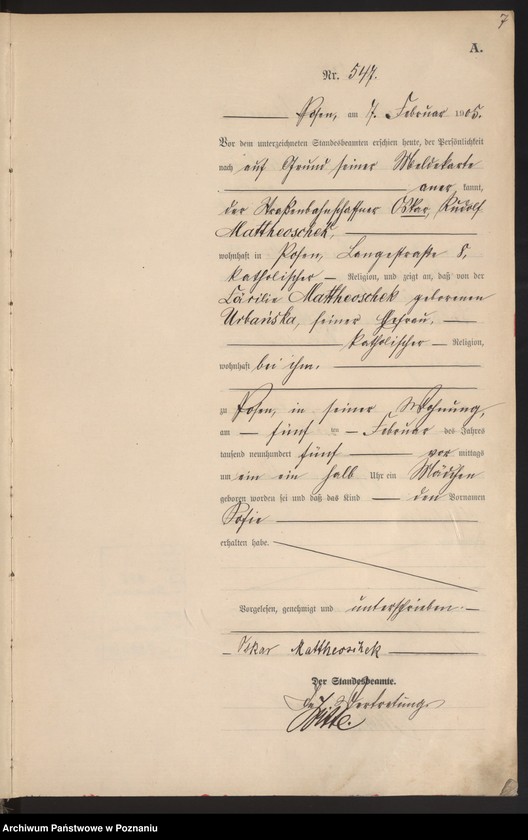 7
A.
Nr. 547.
Posen, am 7. Februar 1905.
Vor dem unterzeichneten Standesbeamten erschien heute, der Persönlichkeit
nach auf Grund seiner Meldekarte
anerkannt,
der Straßenbahnschaffner Oskar Rudolf
Mattheoschek,
wohnhaft in Posen, Langestraße 8,
katholischer Religion, und zeigt an, daß von der
Cäcilie Mattheoschek geborenen
Urbańska, seiner Ehefrau,
katholischer Religion,
wohnhaft bei ihm,
zu Posen, in seiner Wohnung,
am fünften Februar des Jahres
tausend neunhundert fünf vor mittags
um ein ein halb Uhr ein Mädchen
geboren worden sei und daß das Kind den Vornamen
Sofie
erhalten habe.
Vorgelesen, genehmigt und unterschrieben.
Oskar Mattheoschek
Der Standesbeamte.
In Vertretung
Witte.
Archiwum Państwowe w Poznaniu